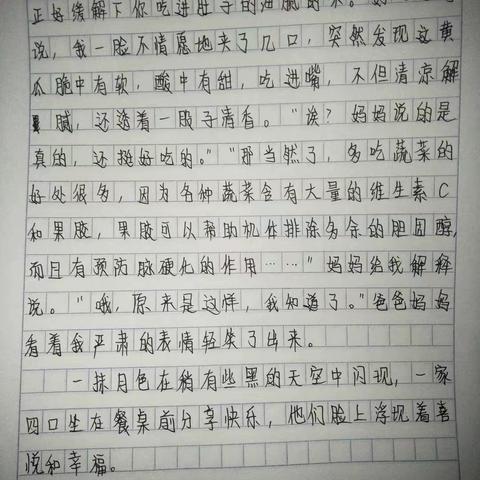 正好缓解下你吃进肚子的油腻的
说，我一脸不情愿地夹了几口，突然发现这黄
瓜脆中有软，酸中有甜，吃进嘴，不但清凉解
腻，还透着一股子清香。“诶？妈妈说的是
真的，还挺好吃的。”“那当然了，多吃蔬菜的
好处很多，因为各种蔬菜含有大量的维生素C
和果胶，果胶可以帮助机体排除多余的胆固醇，
而且有预防脉硬化的作用……”妈妈给我解释
说。“哦，原来是这样，我知道了。”爸爸妈妈
看着我严肃的表情轻笑了出来。
一抹月色在稍有些黑的天空中闪现，一家
四口坐在餐桌前分享快乐，他们脸上浮现着喜
悦和幸福。